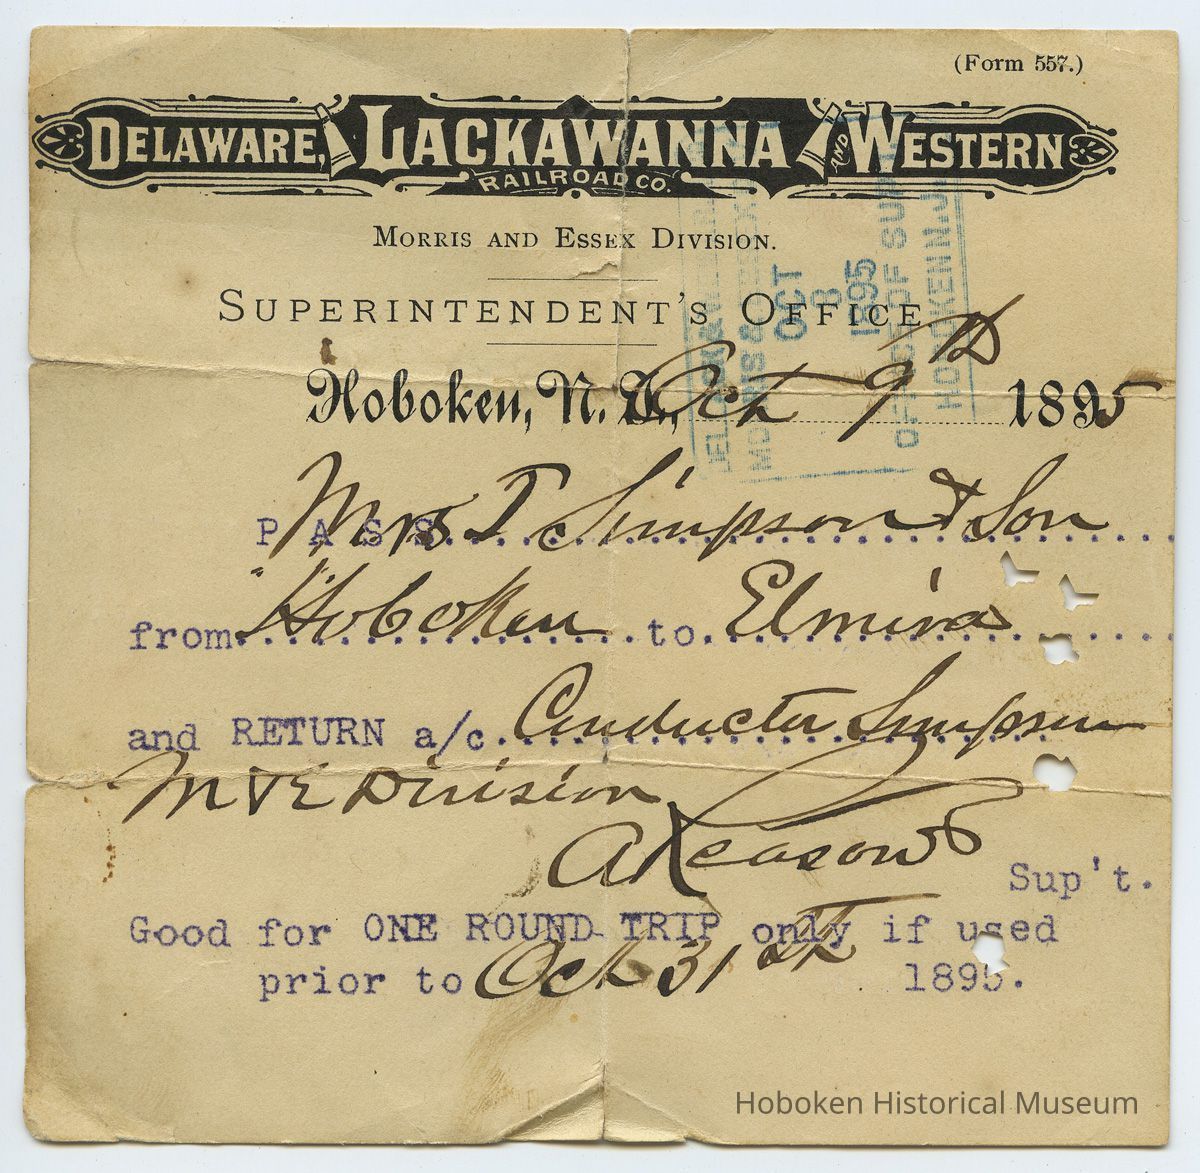 (Form 557.)
DELAWARE, LACKAWANNA AND WESTERN
RAILROAD CO.
MORRIS AND ESSEX DIVISION.
SUPERINTENDENT'S OFFICE
Hoboken, N. J., Oct 9th 1895
PASS Mrs T Simpson & Son
from "Hoboken to Elmira
and RETURN a/c Conductor Simpson
M & E Division
A Reasoner
Sup't.
Good for ONE ROUND TRIP only if used
prior to Oct 31st 1895.
OCT
8
1895
OFFICE OF SUP
HOBOKEN N.J.
Hoboken Historical Museum